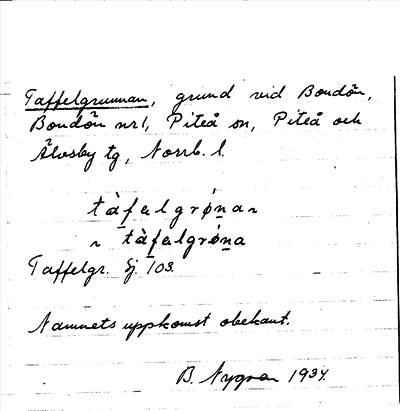 Taffelgrunnan, grund vid Bondön,
Bondön nr1, Piteå sn, Piteå och
Älvsby tg, Norrb. l.
tàfelgrǿnan
~ tàfelgrǿna
Taffelgr. Sj. 103.
Namnets uppkomst obekant.
B. Nygren 1934.